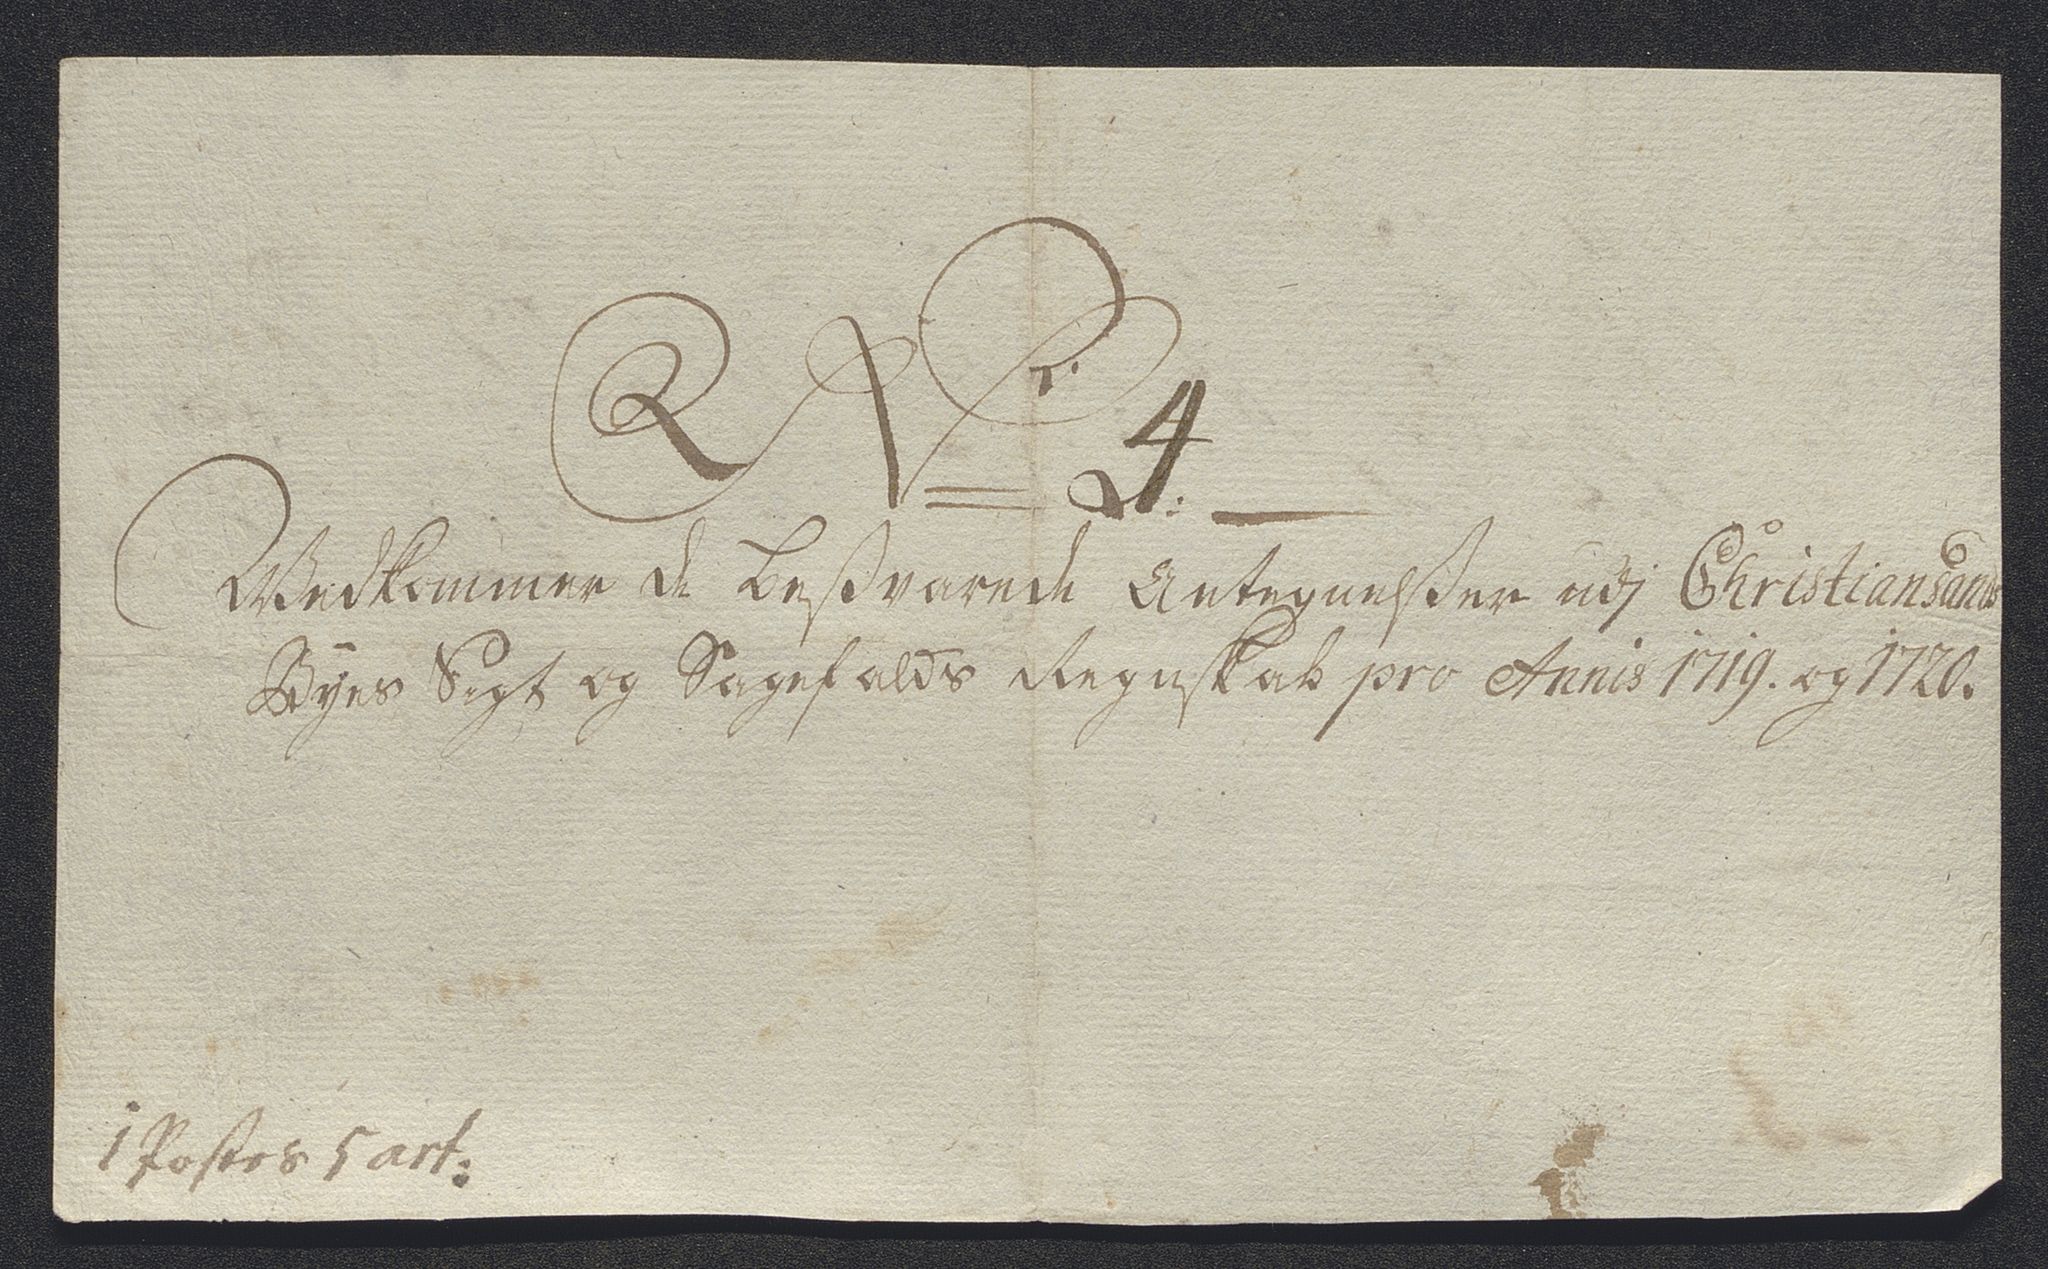 No 4.
Vedkommer de besvarede Antegnelser udj Christiansands
Byes Sigt og Sagefalds Regnskab pro Annis 1719. og 1720.
1 Postes 5 art: